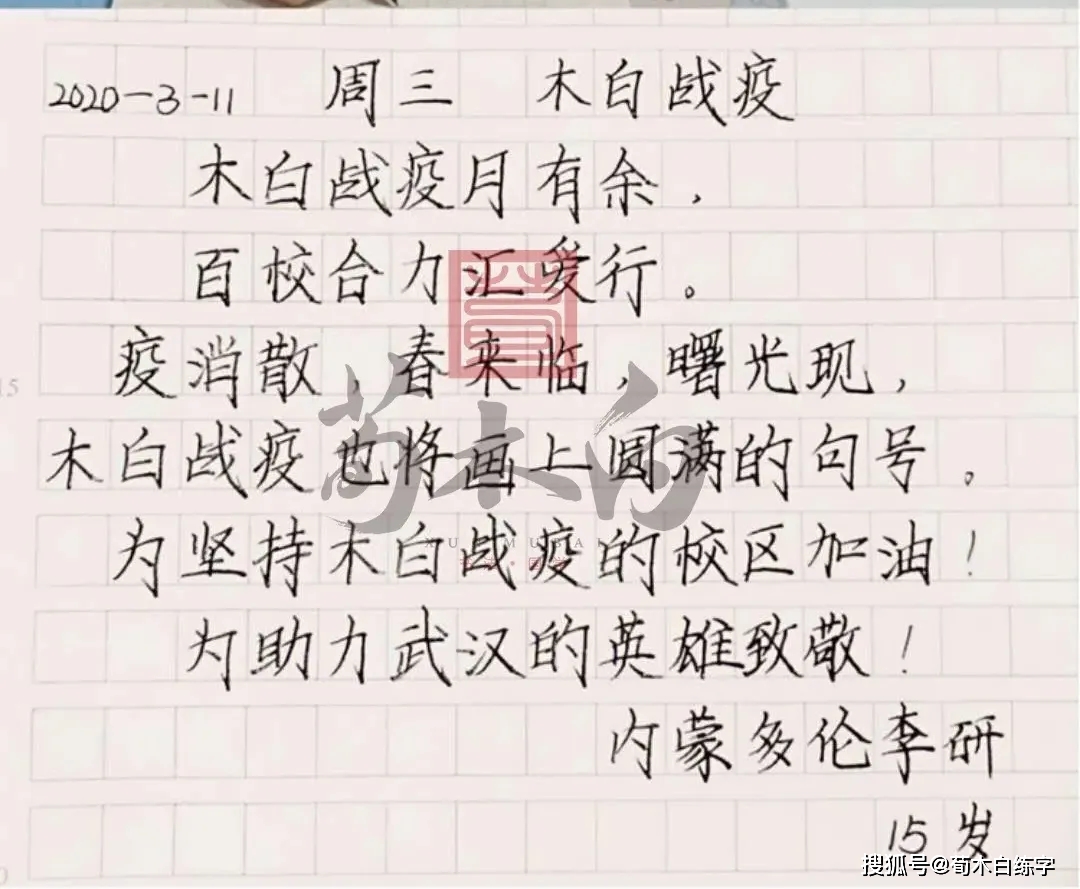 2020-3-11 周三 木白战疫
木白战疫月有余，
百校合力汇爱行。
疫消散，春来临，曙光现，
木白战疫也将画上圆满的句号。
为坚持木白战疫的校区加油！
为助力武汉的英雄致敬！
内蒙多伦李研
15岁
15
荀木白
XUN MUBAI
搜狐号@荀木白练字